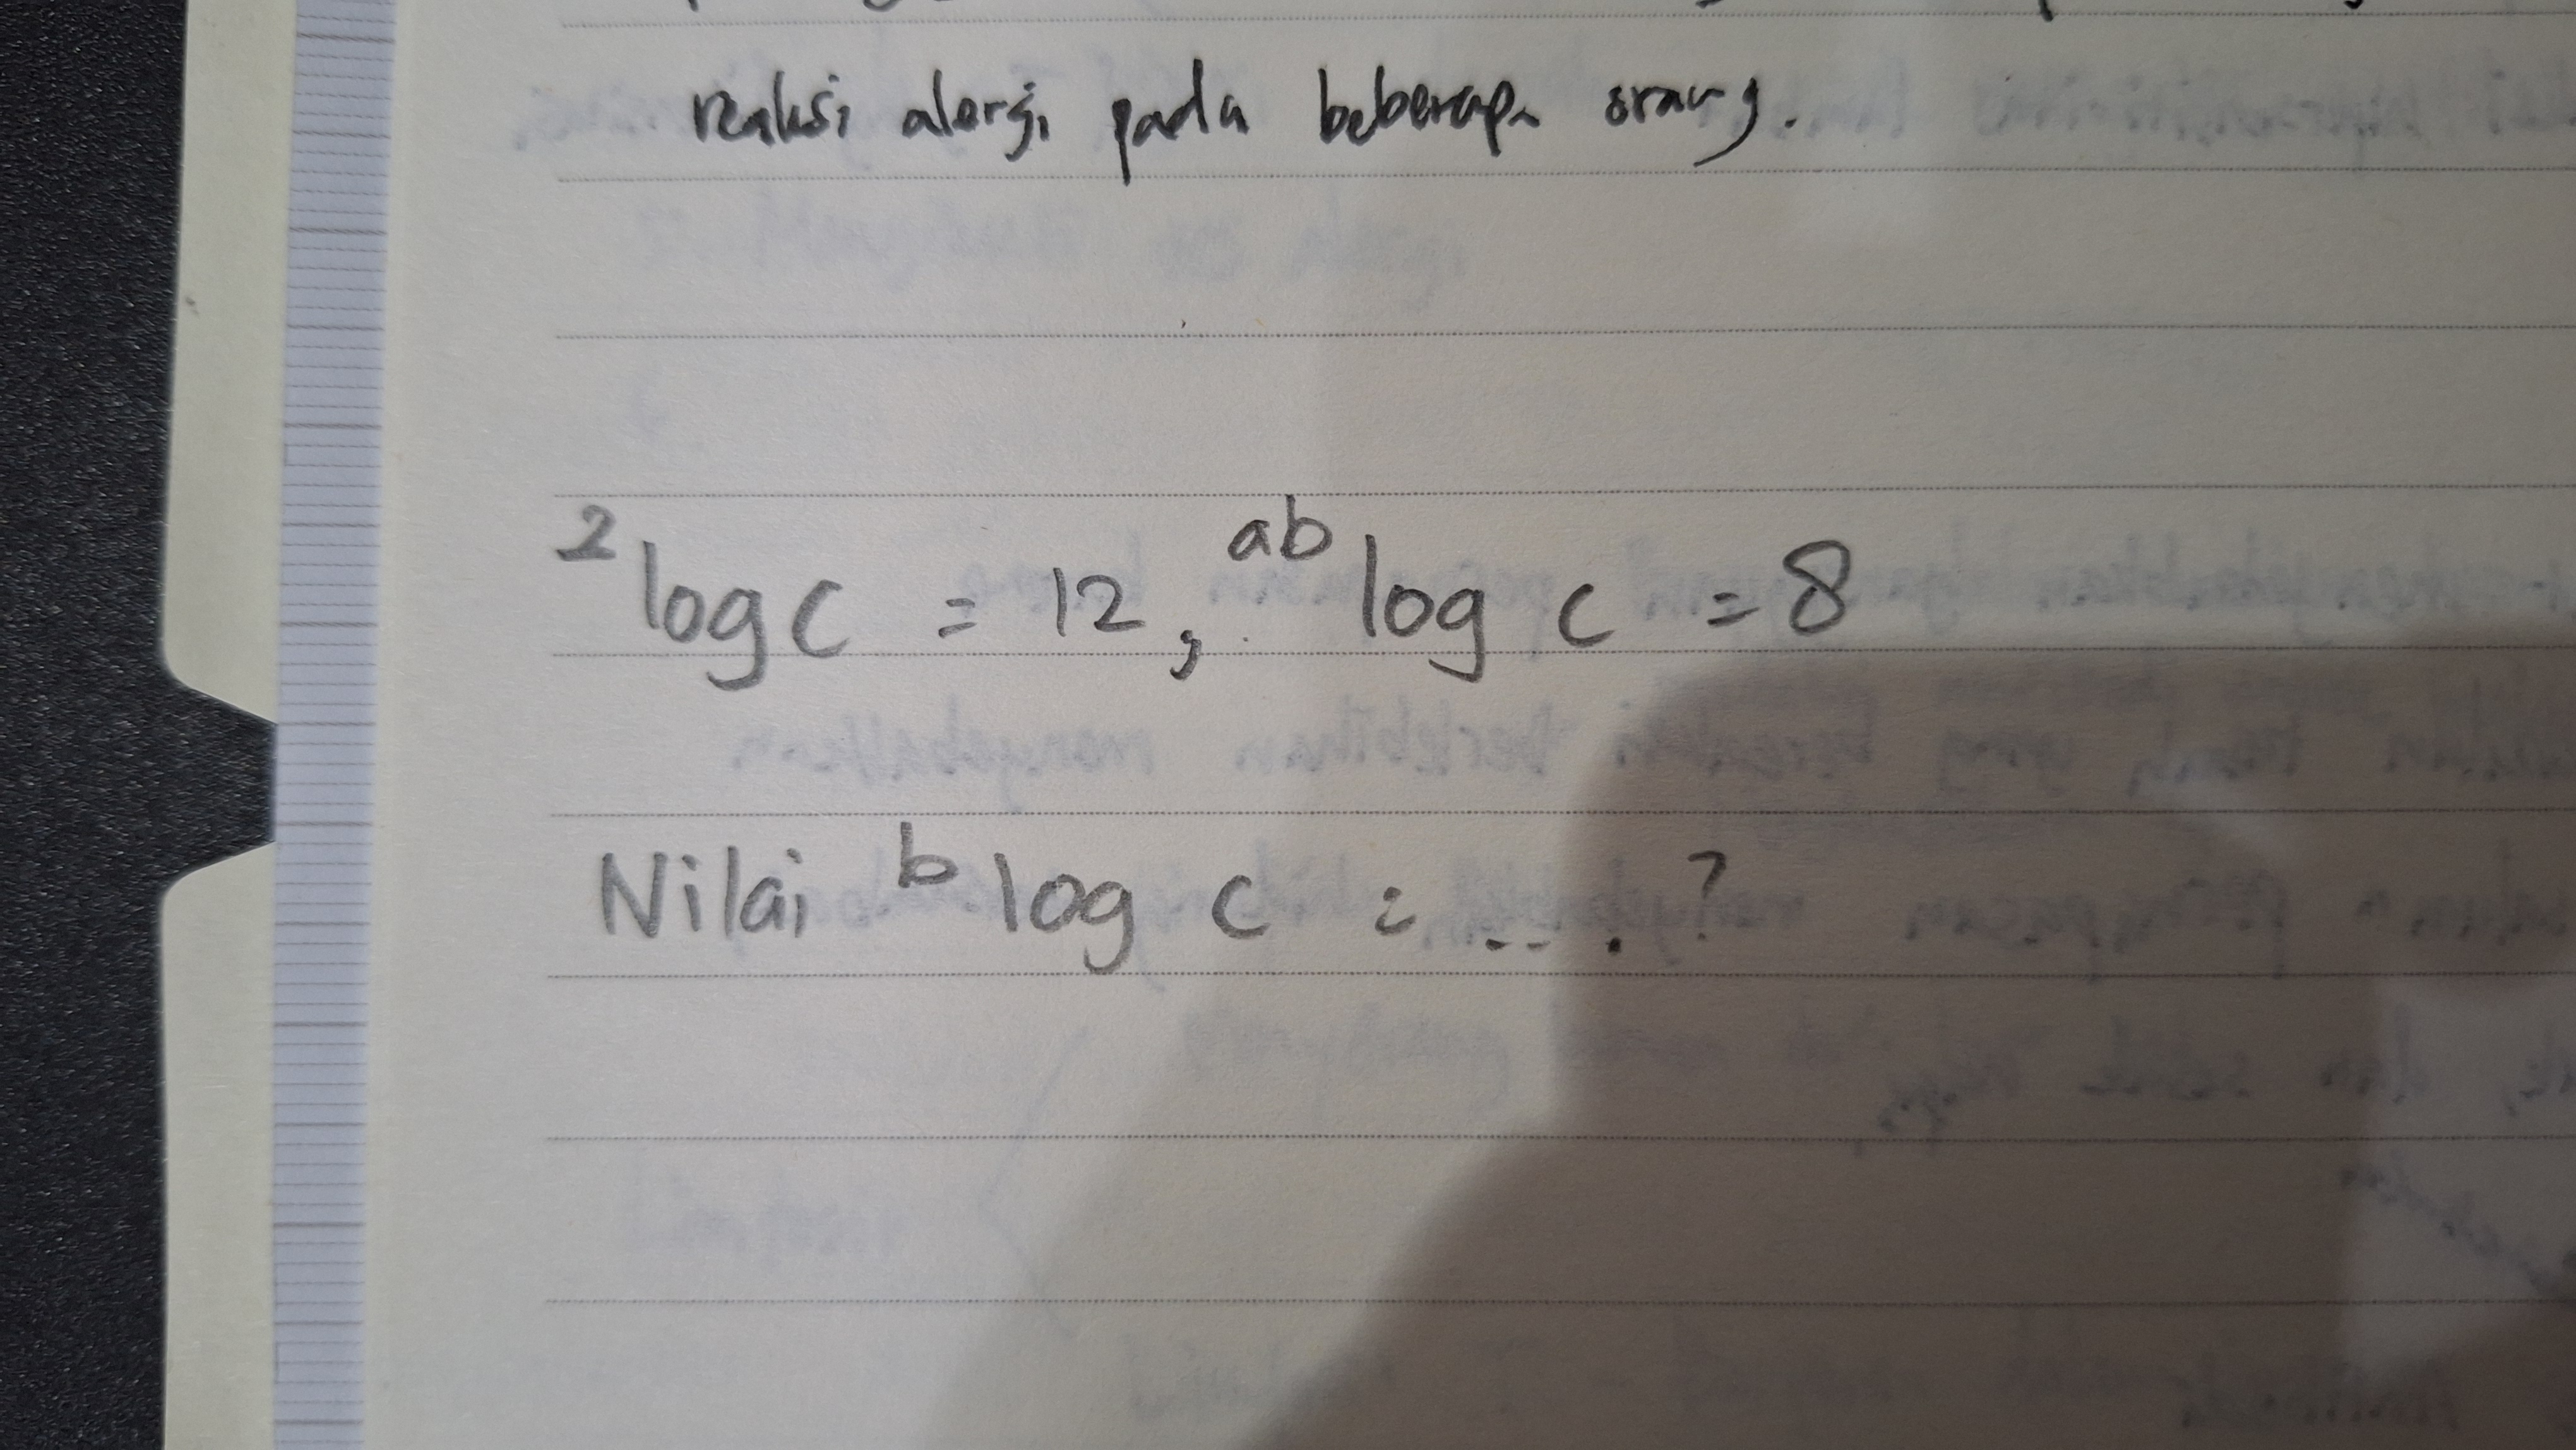 reaksi alergi pada beberapa orang.
²log c = 12, ᵃᵇlog c = 8
Nilai ᵇlog c = ...?